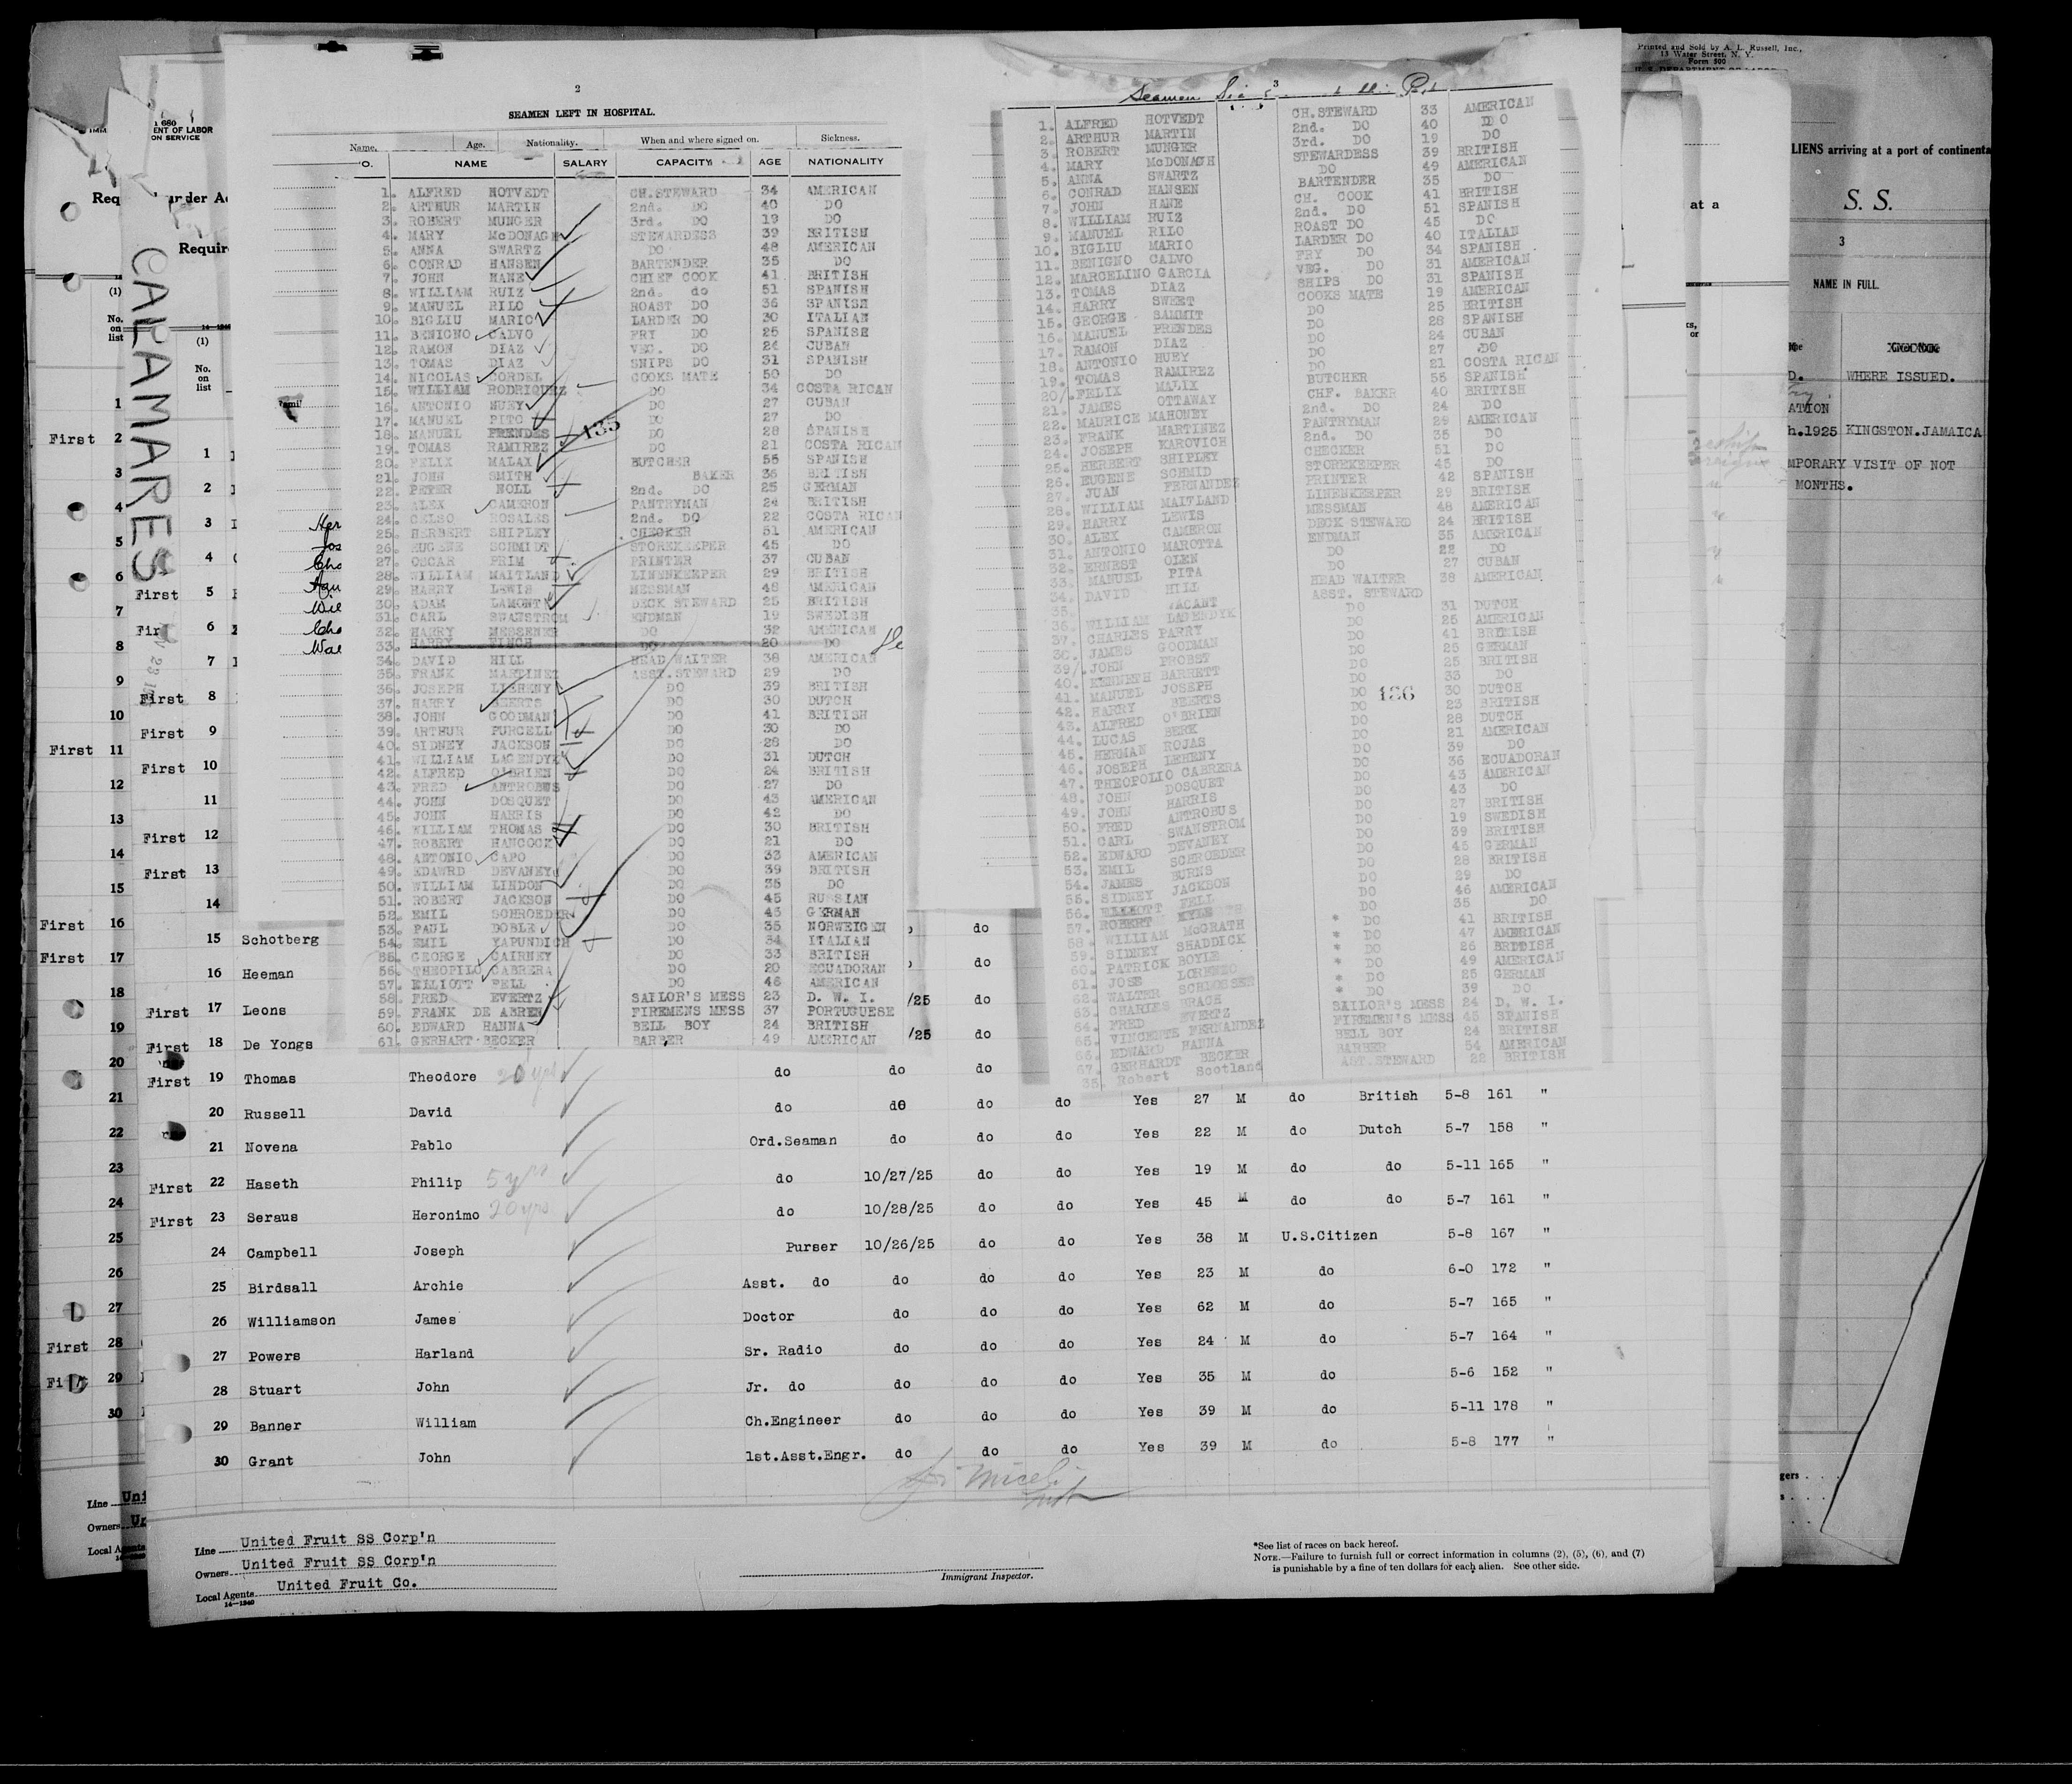 2
SEAMEN LEFT IN HOSPITAL.
Name. Age. Nationality. When and where signed on. Sickness.
O. NAME SALARY CAPACITY AGE NATIONALITY
1. ALFRED HOTVEDT CH.STEWARD 34 AMERICAN
2. ARTHUR MARTIN 2nd. DO 40 DO
3. ROBERT MUNGER 3rd. DO 19 DO
4. MARY McDONAGH STEWARDESS 39 BRITISH
5. ANNA SWARTZ DO 48 AMERICAN
6. CONRAD HANSEN BARTENDER 35 DO
7. JOHN HANE CHIEF COOK 41 BRITISH
8. WILLIAM RUIZ 2nd. do 51 SPANISH
9. MANUEL RILO ROAST DO 36 SPANISH
10. BIGLIU MARIO LARDER DO 30 ITALIAN
11. BENIGNO CALVO FRY DO 25 SPANISH
12. RAMON DIAZ VEG. DO 26 CUBAN
13. TOMAS DIAZ SHIPS DO 31 SPANISH
14. NICOLAS CORDEL COOKS MATE 50 DO
15. WILLIAM RODRIQUEZ DO 34 COSTA RICAN
16. ANTONIO HUEY DO 27 CUBAN
17. MANUEL PITO DO 27 DO
18. MANUEL PRENDES DO 28 SPANISH
135
19. TOMAS RAMIREZ DO 21 COSTA RICAN
20. FELIX MALAX BUTCHER 55 SPANISH
21. JOHN SMITH BAKER 36 BRITISH
22. PETER NOLL 2nd. DO 25 GERMAN
23. ALEX CAMERON PANTRYMAN 24 BRITISH
24. CELSO ROSALES 2nd. DO 22 COSTA RICAN
25. HERBERT SHIPLEY CHECKER 51 AMERICAN
26. EUGENE SCHMIDT STOREKEEPER 45 DO
27. OSCAR PRIM PRINTER 37 CUBAN
28. WILLIAM MAITLAND LINENKEEPER 29 BRITISH
29. HARRY LEWIS MESSMAN 48 AMERICAN
30. ADAM LAMONT DECK STEWARD 25 BRITISH
31. CARL SWANSTROM ENDMAN 19 SWEDISH
32. HARRY MESSENER DO 32 AMERICAN
33. HARRY FINCH DO 20 DO
34. DAVID HILL HEAD WAITER 38 AMERICAN
35. FRANK MARTINEZ ASST.STEWARD 29 DO
36. JOSEPH LIEHENY DO 39 BRITISH
37. HARRY BEERTS DO 30 DUTCH
38. JOHN GOODMAN DO 41 BRITISH
39. ARTHUR PURCELL DO 30 DO
40. SIDNEY JACKSON DO 28 DO
41. WILLIAM LAGENDYK DO 31 DUTCH
42. ALFRED O'BRIEN DO 24 BRITISH
43. FRED ANTROBUS DO 27 DO
44. JOHN DOSQUET DO 43 AMERICAN
45. JOHN HARRIS DO 42 DO
46. WILLIAM THOMAS DO 30 BRITISH
47. ROBERT HANCOCK DO 21 DO
48. ANTONIO CAPO DO 33 AMERICAN
49. EDAWRD DEVANEY DO 39 BRITISH
50. WILLIAM LINDON DO 35 DO
51. ROBERT JACKSON DO 45 RUSSIAN
52. EMIL SCHROEDER DO 45 GERMAN
53. PAUL DOBLE DO 35 NORWEIGEN
54. EMIL YAPUNDICH DO 34 ITALIAN
55. GEORGE CAIRNEY DO 33 BRITISH
56. THEOPILO CABRERA DO 20 ECUADORAN
57. ELLIOTT FELL DO 46 AMERICAN
58. FRED EVERTZ SAILOR'S MESS 23 D. W. I.
59. FRANK DE ABREN FIREMENS MESS 37 PORTUGUESE
60. EDWARD HANNA BELL BOY 24 BRITISH
61. GERHART BECKER BARBER 49 AMERICAN
Seamen
3
1. ALFRED HOTVEDT CH.STEWARD 33 AMERICAN
2. ARTHUR MARTIN 2nd. DO 40 DO
3. ROBERT MUNGER 3rd. DO 19 DO
4. MARY McDONAGH STEWARDESS 39 BRITISH
5. ANNA SWARTZ DO 49 AMERICAN
6. CONRAD HANSEN BARTENDER 35 DO
7. JOHN HANE CH. COOK 41 BRITISH
8. WILLIAM RUIZ 2nd. DO 51 SPANISH
9. MANUEL RILO ROAST DO 45 DO
10. BIGLIU MARIO LARDER DO 40 ITALIAN
11. BENIGNO CALVO FRY DO 34 SPANISH
12. MARCELINO GARCIA VEG. DO 31 AMERICAN
13. TOMAS DIAZ SHIPS DO 31 SPANISH
14. HARRY SWEET COOKS MATE 19 AMERICAN
15. GEORGE SAMMIT DO 25 BRITISH
16. MANUEL PRENDES DO 28 SPANISH
17. RAMON DIAZ DO 24 CUBAN
18. ANTONIO HUEY DO 27 DO
19. TOMAS RAMIREZ DO 21 COSTA RICAN
20/. FELIX MALIX BUTCHER 55 SPANISH
21. JAMES OTTAWAY CHF. BAKER 40 BRITISH
22. MAURICE MAHONEY 2nd. DO 24 DO
23. FRANK MARTINEZ PANTRYMAN 29 AMERICAN
24. JOSEPH KAROVICH 2nd. DO 35 DO
25. HERBERT SHIPLEY CHECKER 51 DO
26. EUGENE SCHMID STOREKEEPER 45 DO
27. JUAN FERNANDEZ PRINTER 42 SPANISH
28. WILLIAM MAITLAND LINENKEEPER 29 BRITISH
29. HARRY LEWIS MESSMAN 48 AMERICAN
30. ALEX CAMERON DECK STEWARD 24 BRITISH
31. ANTONIO MAROTTA ENDMAN 35 AMERICAN
32. ERNEST OLEN DO 22 DO
33. MANUEL PITA DO 27 CUBAN
34. DAVID HILL HEAD WAITER 38 AMERICAN
35. VACANT ASST. STEWARD
36. WILLIAM LAGENDYK DO 31 DUTCH
37. CHARLES PARRY DO 25 AMERICAN
38. JAMES GOODMAN DO 41 BRITISH
39/. JOHN PROBST DO 25 GERMAN
40. KENNETH BARRETT DO 25 BRITISH
41. MANUEL JOSEPH DO 33 DO
42. HARRY BEERTS DO 30 DUTCH
136
43. ALFRED O'BRIEN DO 23 BRITISH
44. LUCAS BERK DO 28 DUTCH
45. HERMAN ROJAS DO 21 AMERICAN
46. JOSEPH LEHENY DO 39 DO
47. THEOPOLIO CABRERA DO 36 ECUADORAN
48. JOHN DOSQUET DO 43 AMERICAN
49. JOHN HARRIS DO 43 DO
50. FRED ANTROBUS DO 27 BRITISH
51. CARL SWANSTROM DO 19 SWEDISH
52. EDWARD DEVANEY DO 39 BRITISH
53. EMIL SCHROEDER DO 45 GERMAN
54. JAMES BURNS DO 28 BRITISH
55. SIDNEY JACKSON DO 29 DO
56. ELLIOTT FELL DO 46 AMERICAN
57. ROBERT KYLE DO 35 DO
58. WILLIAM McGRATH * DO 41 BRITISH
59. SIDNEY SHADDICK * DO 47 AMERICAN
60. PATRICK BOYLE * DO 26 BRITISH
61. JOSE LORENZO * DO 49 AMERICAN
62. WALTER SCHLOSSER * DO 25 GERMAN
63. CHARLES BRACH * DO 39 DO
64. FRED EVERTZ SAILOR'S MESS 24 D. W. I.
65. VINCENTE FERNANDEZ FIREMEN'S MESS 45 SPANISH
66. EDWARD HANNA BELL BOY 24 BRITISH
67. GERHARDT BECKER BARBER 54 AMERICAN
35. Robert Scotland AST.STEWARD 28 BRITISH
Printed and Sold by A. L. Russell, Inc.,
13 Water Street, N. Y.
Form 500
LIENS arriving at a port of continenta
S. S.
3
NAME IN FULL.
D. WHERE ISSUED.
ATION
h.1925 KINGSTON.JAMAICA
MPORARY VISIT OF NOT
MONTHS.
at a
ENT OF LABOR
ON SERVICE
Req under Ac
Require
CALAMARES
(1)
No.
on
list
1
First 2
3
4
5
6
7
8
9
10
First 11
12
13
14
15
First 16
First 17
18
19
20
21
22
23
24
25
26
27
First 28
First 29
30
14-1240
(1)
No.
on
list
1
2
3
4
First 5
First 6
7
First 8
First 9
First 10
11
First 12
First 13
14
15 Schotberg do
16 Heeman do
First 17 Leons /25 do
First 18 De Yongs /25 do
First 19 Thomas Theodore 20 yrs do do do
20 Russell David do do do do Yes 27 M do British 5-8 161 "
21 Novena Pablo Ord.Seaman do do do Yes 22 M do Dutch 5-7 158 "
First 22 Haseth Philip 5 yrs do 10/27/25 do do Yes 19 M do do 5-11 165 "
First 23 Seraus Heronimo 20 yrs do 10/28/25 do do Yes 45 M do do 5-7 161 "
24 Campbell Joseph Purser 10/26/25 do do Yes 38 M U.S.Citizen 5-8 167 "
25 Birdsall Archie Asst. do do do do Yes 23 M do 6-0 172 "
26 Williamson James Doctor do do do Yes 62 M do 5-7 165 "
27 Powers Harland Sr. Radio do do do Yes 24 M do 5-7 164 "
28 Stuart John Jr. do do do do Yes 35 M do 5-6 152 "
29 Banner William Ch.Engineer do do do Yes 39 M do 5-11 178 "
30 Grant John 1st.Asst.Engr. do do do Yes 39 M do 5-8 177 "
Line United Fruit SS Corp'n
Owners United Fruit SS Corp'n
Local Agents United Fruit Co.
14-1240
Immigrant Inspector.
*See list of races on back hereof.
NOTE.—Failure to furnish full or correct information in columns (2), (5), (6), and (7)
is punishable by a fine of ten dollars for each alien. See other side.
Line Uni
Owners Un
Local Agents